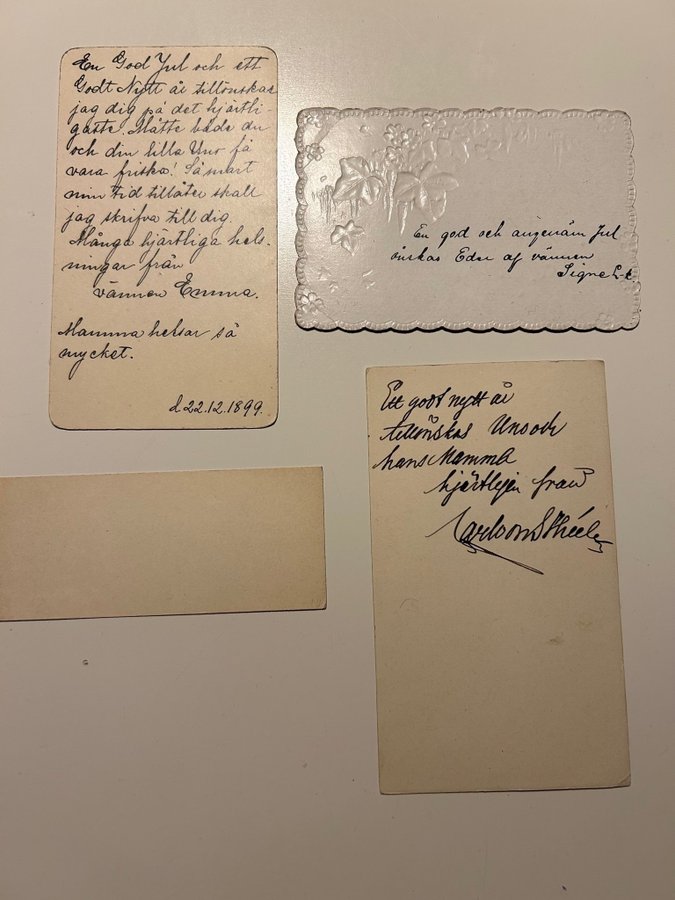 En God Jul och ett
Godt Nytt år tillönskar
jag dig på det hjärtli-
gaste. Måtte både du
och din lilla Uno få
vara friska! Så snart
min tid tillåter skall
jag skrifva till dig.
Många hjärtliga hels-
ningar från
vännen Emma.
Mamma helsar så
mycket.
d. 22.12.1899.
En god och angenäm Jul
önskas Eder af vännen
Signe
Ett godt nytt år
tillönskas Uno och
hans Mamma
hjärtligen från